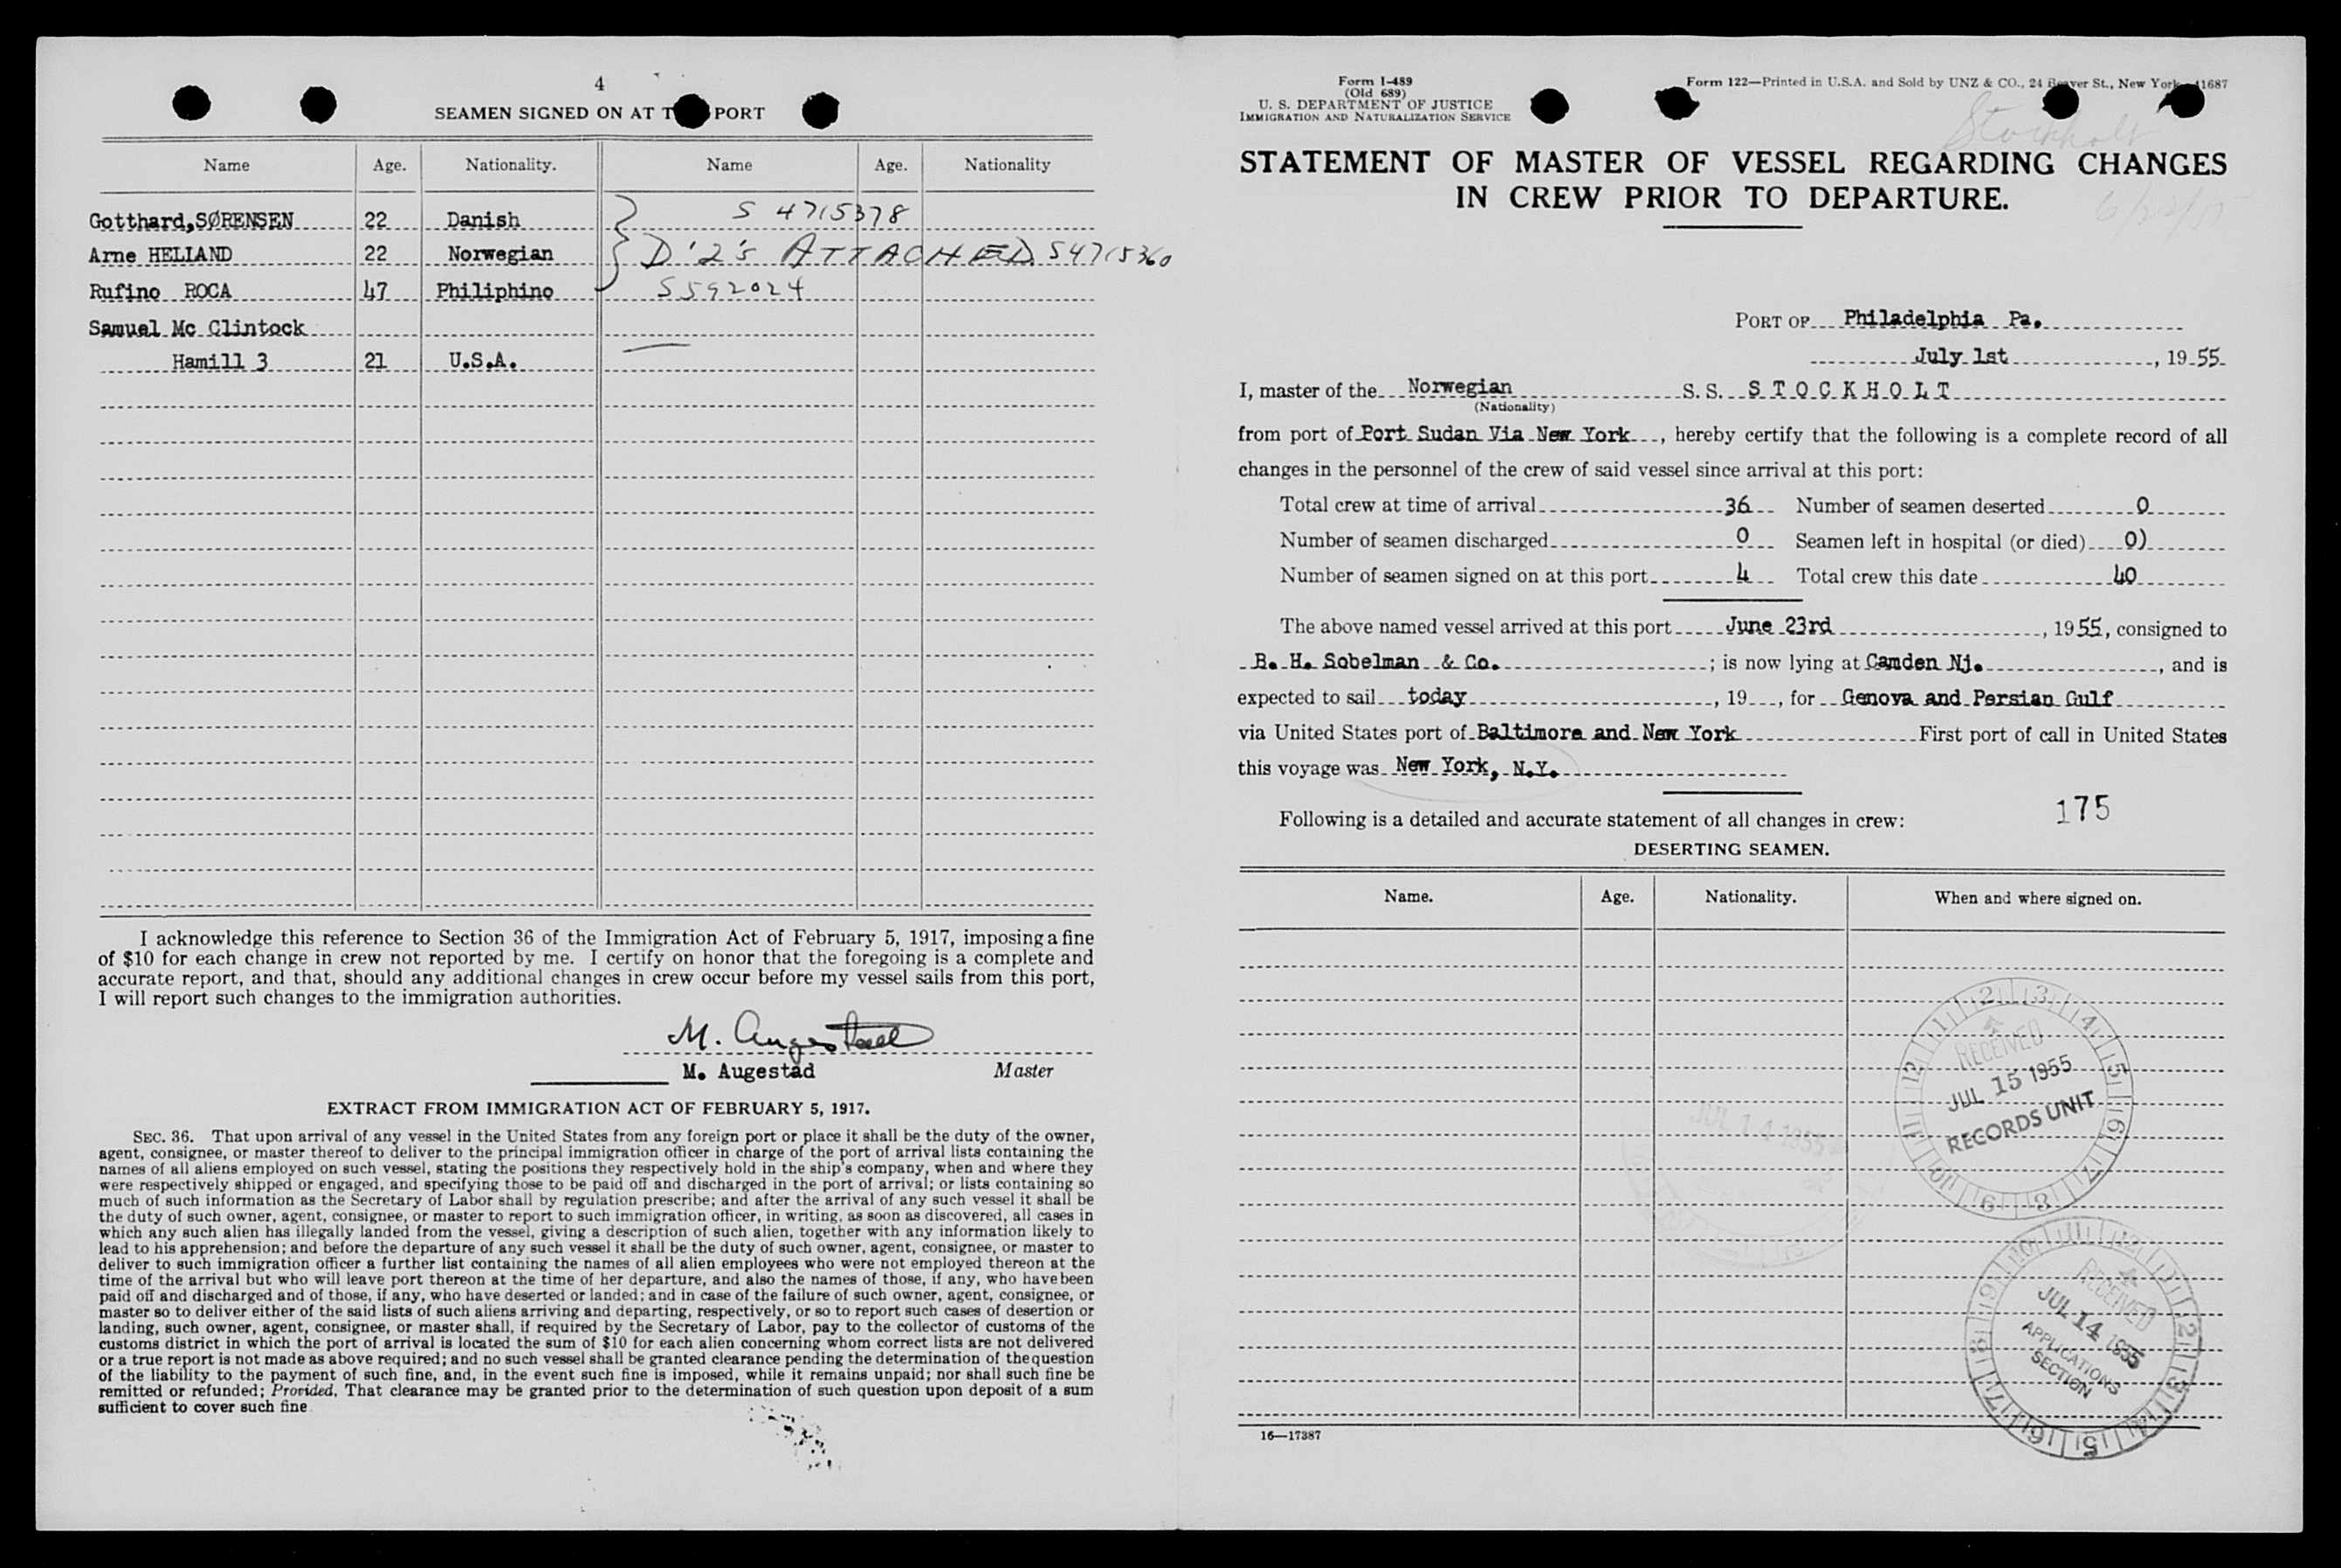 4
SEAMEN SIGNED ON AT T PORT
Name Age. Nationality. Name Age. Nationality
Gotthard,SØRENSEN 22 Danish S 4715378
Arne HELLAND 22 Norwegian D'2's ATTACHED S4715360
Rufino ROCA 47 Philiphino S592024
Samuel Mc Clintock
Hamill 3 21 U.S.A.
I acknowledge this reference to Section 36 of the Immigration Act of February 5, 1917, imposing a fine
of $10 for each change in crew not reported by me. I certify on honor that the foregoing is a complete and
accurate report, and that, should any additional changes in crew occur before my vessel sails from this port,
I will report such changes to the immigration authorities.
M. Augestad
M. Augestad Master
EXTRACT FROM IMMIGRATION ACT OF FEBRUARY 5, 1917.
SEC. 36. That upon arrival of any vessel in the United States from any foreign port or place it shall be the duty of the owner,
agent, consignee, or master thereof to deliver to the principal immigration officer in charge of the port of arrival lists containing the
names of all aliens employed on such vessel, stating the positions they respectively hold in the ship's company, when and where they
were respectively shipped or engaged, and specifying those to be paid off and discharged in the port of arrival; or lists containing so
much of such information as the Secretary of Labor shall by regulation prescribe; and after the arrival of any such vessel it shall be
the duty of such owner, agent, consignee, or master to report to such immigration officer, in writing, as soon as discovered, all cases in
which any such alien has illegally landed from the vessel, giving a description of such alien, together with any information likely to
lead to his apprehension; and before the departure of any such vessel it shall be the duty of such owner, agent, consignee, or master to
deliver to such immigration officer a further list containing the names of all alien employees who were not employed thereon at the
time of the arrival but who will leave port thereon at the time of her departure, and also the names of those, if any, who have been
paid off and discharged and of those, if any, who have deserted or landed; and in case of the failure of such owner, agent, consignee, or
master so to deliver either of the said lists of such aliens arriving and departing, respectively, or so to report such cases of desertion or
landing, such owner, agent, consignee, or master shall, if required by the Secretary of Labor, pay to the collector of customs of the
customs district in which the port of arrival is located the sum of $10 for each alien concerning whom correct lists are not delivered
or a true report is not made as above required; and no such vessel shall be granted clearance pending the determination of the question
of the liability to the payment of such fine, and, in the event such fine is imposed, while it remains unpaid; nor shall such fine be
remitted or refunded; Provided, That clearance may be granted prior to the determination of such question upon deposit of a sum
sufficient to cover such fine
Form I-489
(Old 689)
U. S. DEPARTMENT OF JUSTICE
IMMIGRATION AND NATURALIZATION SERVICE
Form 122—Printed in U.S.A. and Sold by UNZ & CO., 24 Beaver St., New York 11687
Stockholt
STATEMENT OF MASTER OF VESSEL REGARDING CHANGES
IN CREW PRIOR TO DEPARTURE.
PORT OF Philadelphia Pa.
July 1st, 19 55
I, master of the Norwegian S. S. STOCKHOLT
(Nationality)
from port of Port Sudan Via New York, hereby certify that the following is a complete record of all
changes in the personnel of the crew of said vessel since arrival at this port:
Total crew at time of arrival 36 Number of seamen deserted 0
Number of seamen discharged 0 Seamen left in hospital (or died) 0)
Number of seamen signed on at this port 4 Total crew this date 40
The above named vessel arrived at this port June 23rd, 1955, consigned to
B. H. Sobelman & Co. ; is now lying at Camden Nj., and is
expected to sail today, 19 , for Genova and Persian Gulf
via United States port of Baltimore and New York First port of call in United States
this voyage was New York, N.Y.
175
Following is a detailed and accurate statement of all changes in crew:
DESERTING SEAMEN.
Name. Age. Nationality. When and where signed on.
RECEIVED
JUL 15 1955
RECORDS UNIT
JUL 14 1955
RECEIVED
JUL 14 1955
APPLICATIONS
SECTION
16—17387